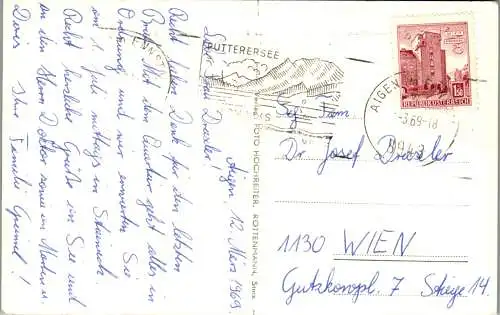 Aigen, 12. März 1969.
Liebe Frau Draxler!
Recht lieben Dank für den letzten
Brief. Mit dem Quartier geht alles in
Ordnung und wir erwarten Sie
am 1. Juli mittags in
Recht herzliche Grüße an Sie und
an den Herrn Doktor sowie an
Ihre Familie
ENNS
PUTTERERSEE
AIGEN
-3.69-18
8943
S 1.50
REPUBLIK ÖSTERREICH
FOTO HOCHREITER, ROTTENMANN, Stmk.
Dr Josef Draxler
1130 WIEN
Gutzkowpl. 7 Stiege 14.